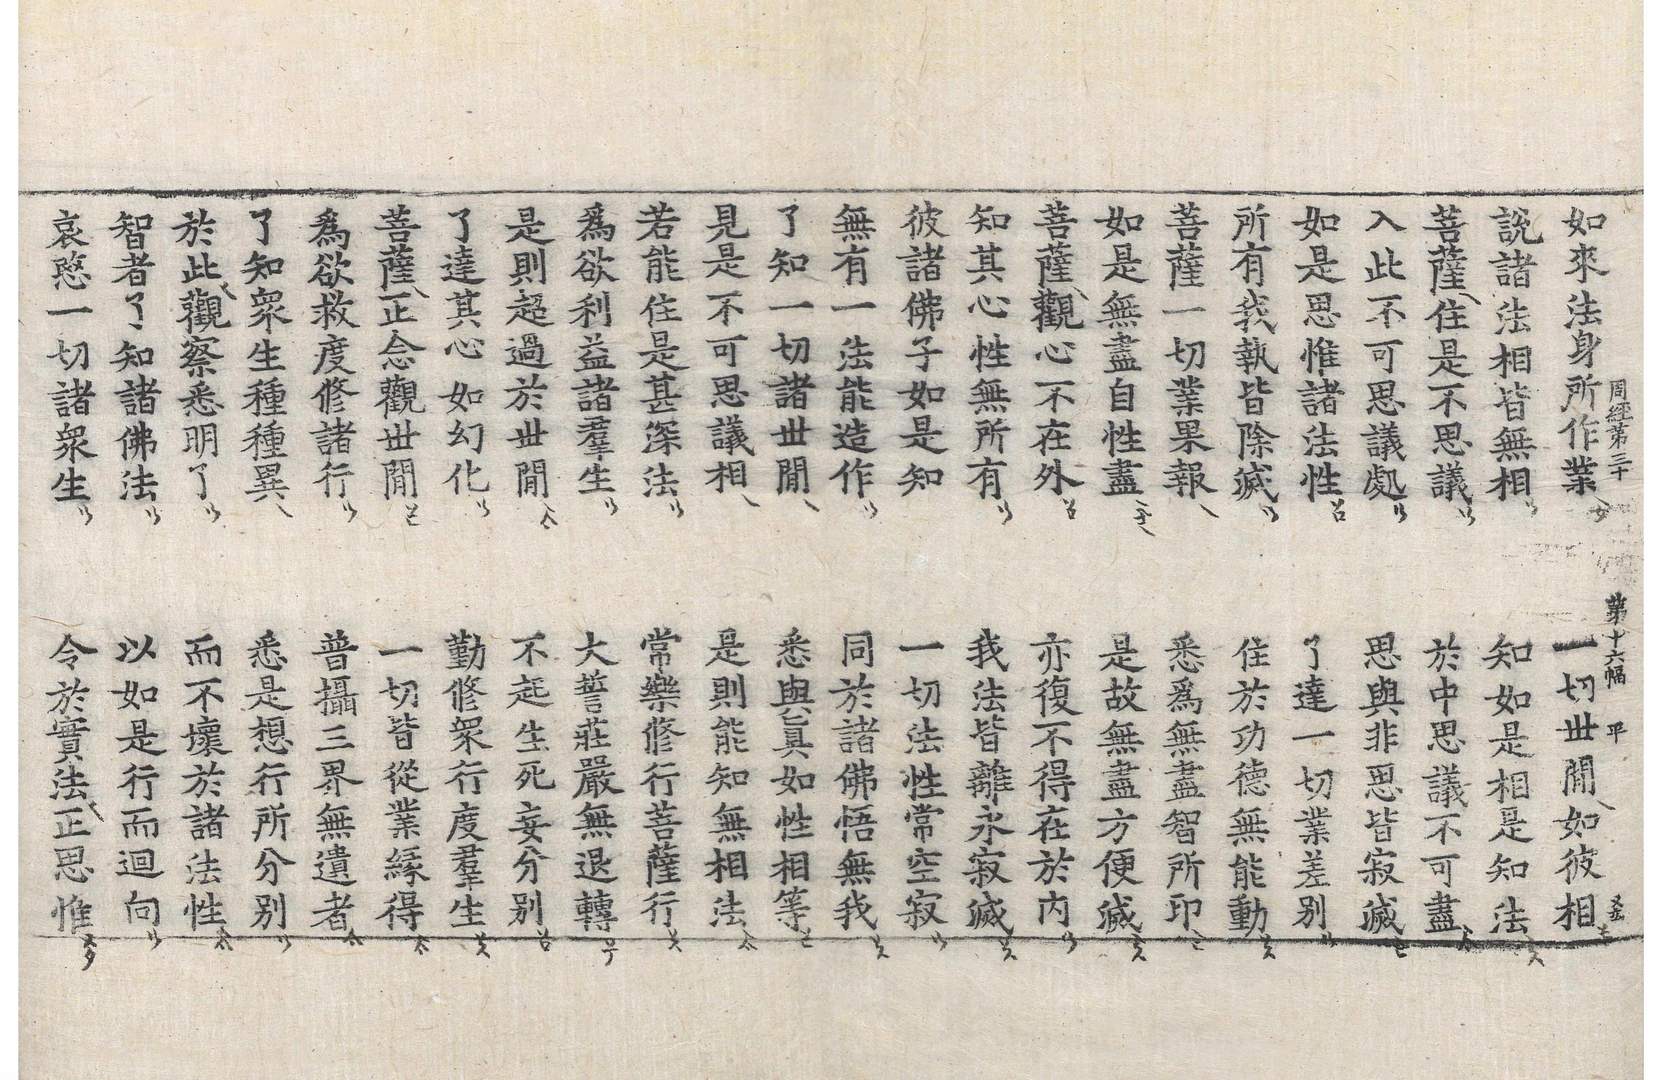 周經第三十 第十六幅 平
如來法身所作業 一切世閒如彼相
說諸法相皆無相 知如是相是知法
菩薩住是不思議 於中思議不可盡
入此不可思議處 思與非思皆寂滅
如是思惟諸法性 了達一切業差別
所有我執皆除滅 住於功德無能動
菩薩一切業果報 悉爲無盡智所印
如是無盡自性盡 是故無盡方便滅
菩薩觀心不在外 亦復不得在於內
知其心性無所有 我法皆離永寂滅
彼諸佛子如是知 一切法性常空寂
無有一法能造作 同於諸佛悟無我
了知一切諸世閒 悉與眞如性相等
見是不可思議相 是則能知無相法
若能住是甚深法 常樂修行菩薩行
爲欲利益諸羣生 大誓莊嚴無退轉
是則超過於世閒 不起生死妄分別
了達其心如幻化 勤修衆行度羣生
菩薩正念觀世閒 一切皆從業緣得
爲欲救度修諸行 普攝三界無遺者
了知衆生種種異 悉是想行所分別
於此觀察悉明了 而不壞於諸法性
智者了知諸佛法 以如是行而迴向
哀愍一切諸衆生 令於實法正思惟